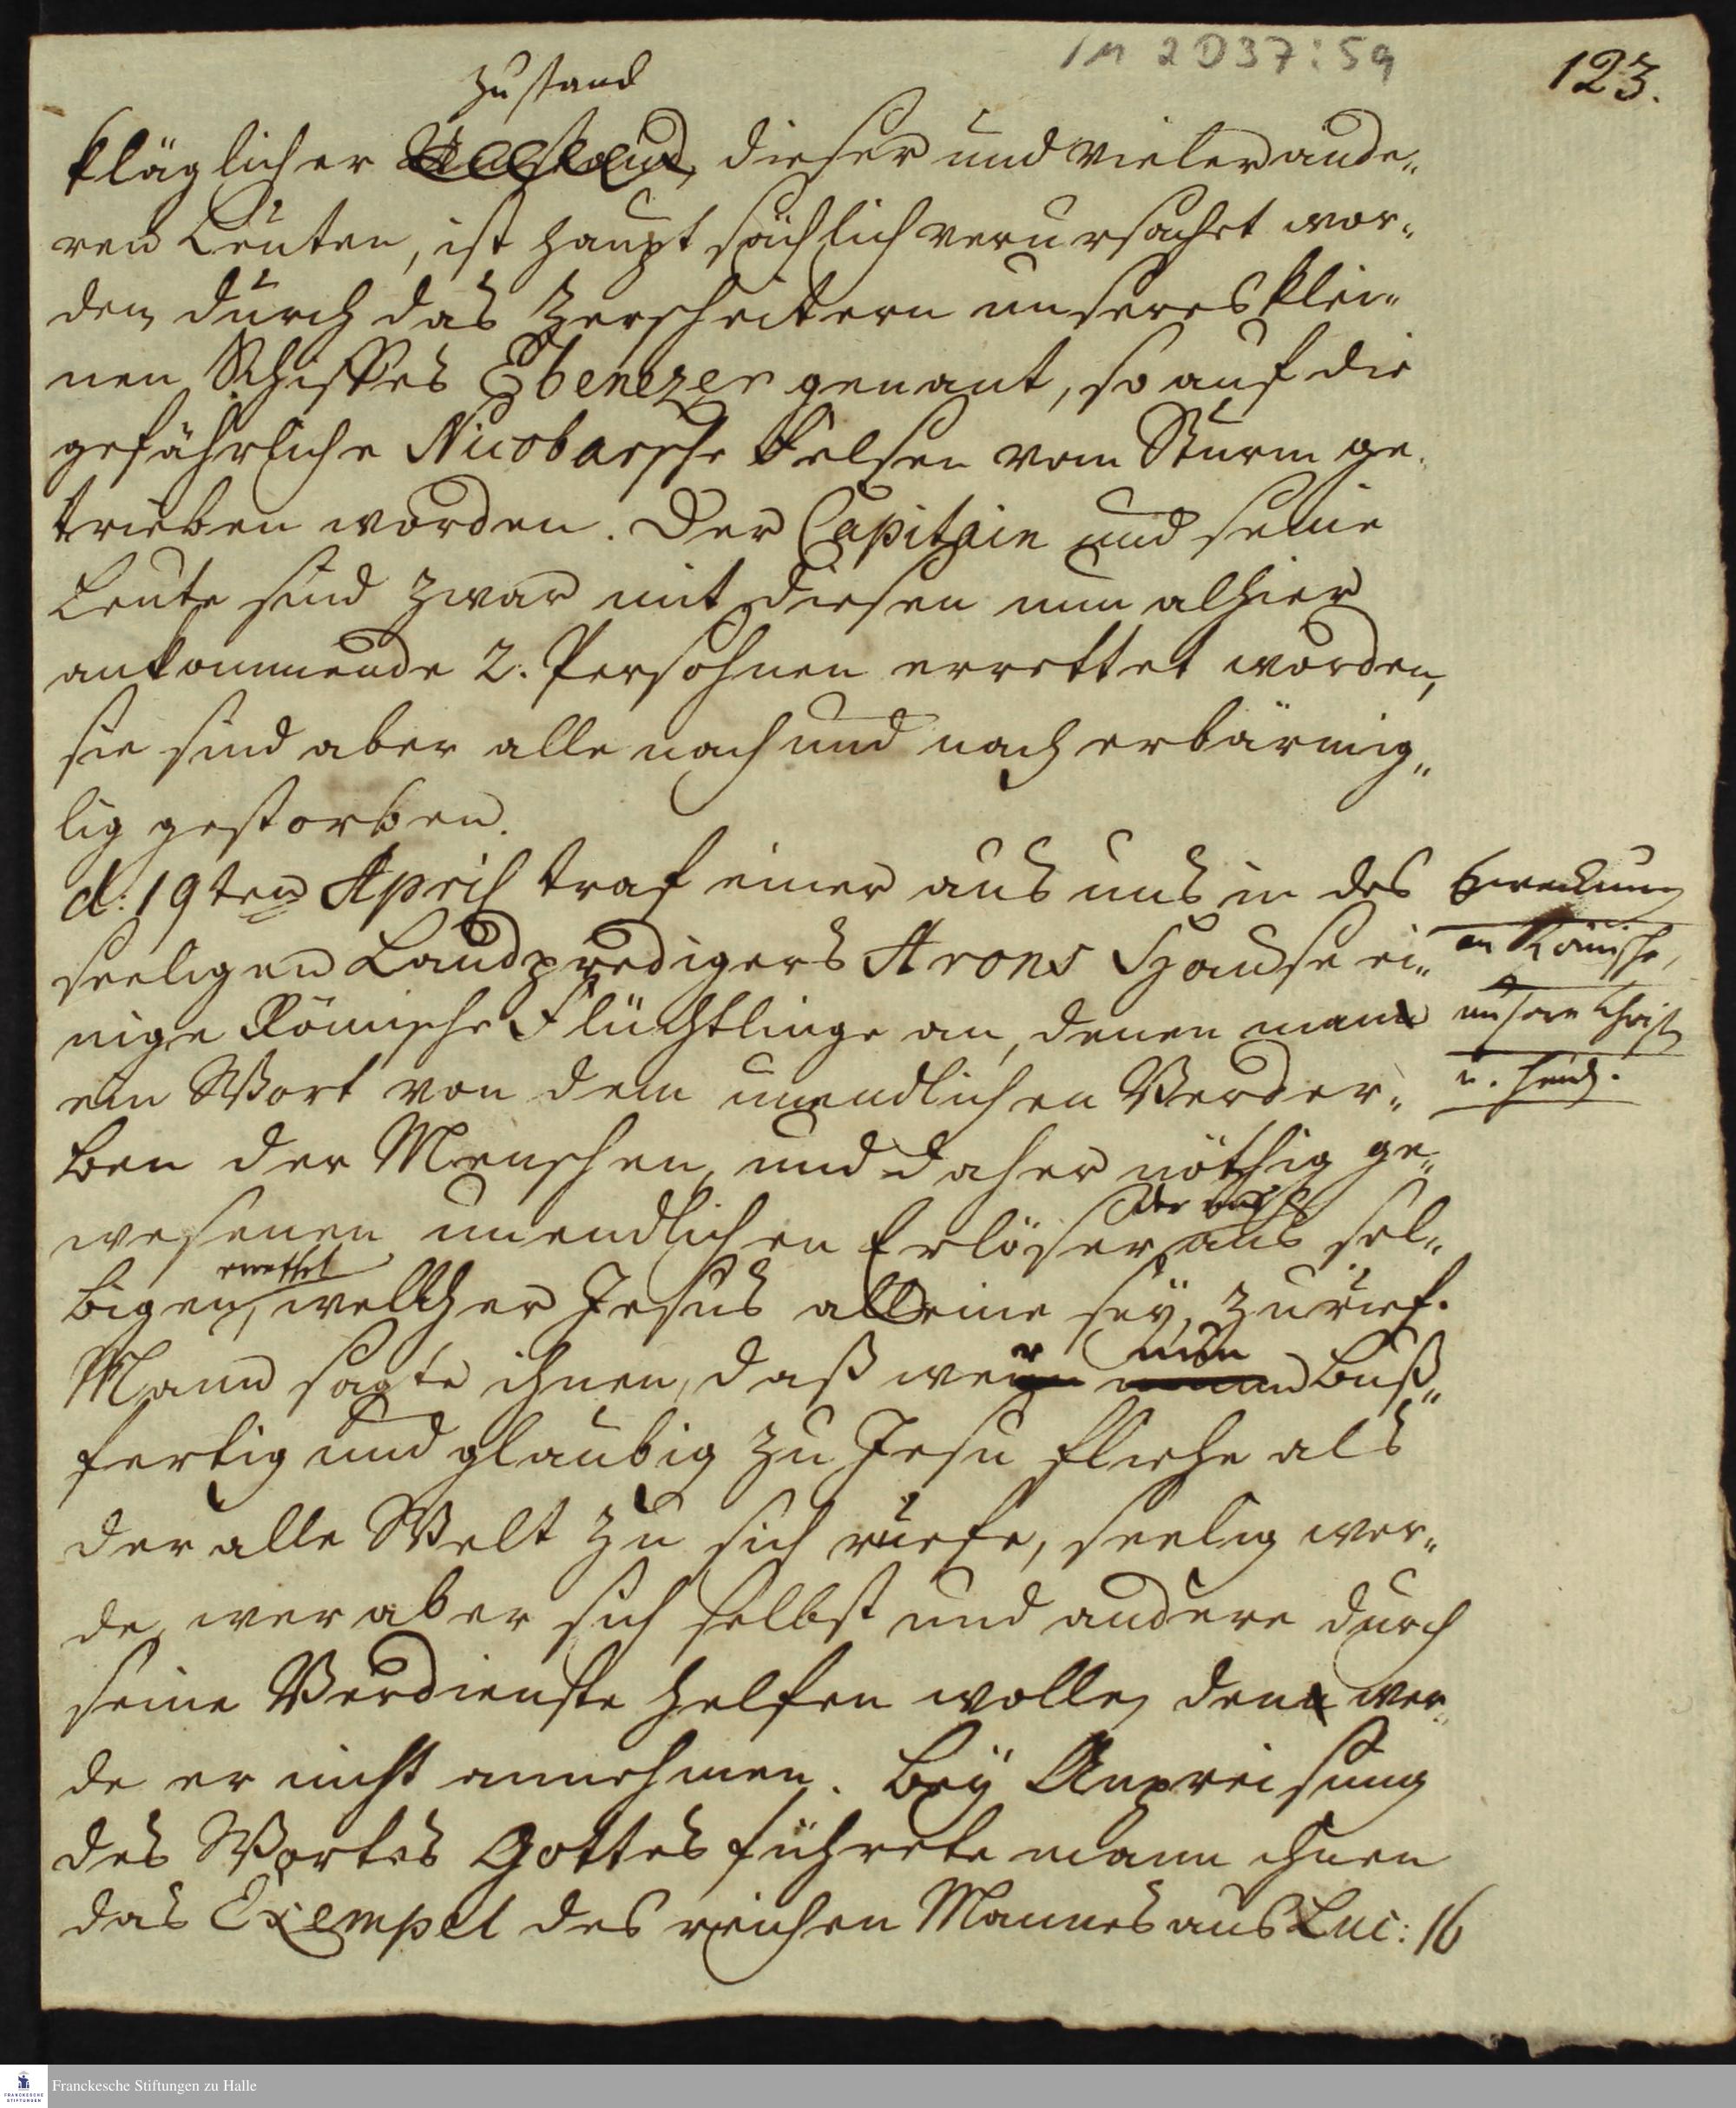 1M 2 D37:59
123.
Zustand
kläglicher dieser und vieler ande„
ren Leuten, ist hauptsächlich verursachet wor„
den durch das Zerscheitern unseres klei„
nen Schiffes Ebenezer genant, so auf die
gefährliche Nicobarsche Felsen vom Sturm ge„
trieben worden. Der Capitain und seine
Leute sind zwar mit diesen nun alhier
ankommende 2. Persohnen errettet worden,
sie sind aber alle nach und nach erbärmig„
lig gestorben.
d: 19ten April traf einer aus uns in des
seeligen Landpredigers Arons Hause ei„
nige Römische Flüchtlinge an, denen man
ein Wort von dem unendlichen Verder„
ben der Menschen, und daher nöthig ge„
wesenen unendlichen Erlöser der aus sel„
bigen errettet, welcher Jesus alleine sey, zurief.
Mann sagte ihnen, daß wer nun buß„
fertig und glaubig zu Jesu fliehe als
der alle Welt zu sich ruefe, seelig wer„
de, wer aber sich selbst und andere durch
seine Verdienste helfen wolle, den wer„
de er nicht annehmen. Bey Anpreisung
des Wortes Gottes führete mann ihnen
das Exempel des reichen Mannes aus Luc: 16
Erweckung
an Römische,
unsere Christ
u. Heid.
Franckesche Stiftungen zu Halle